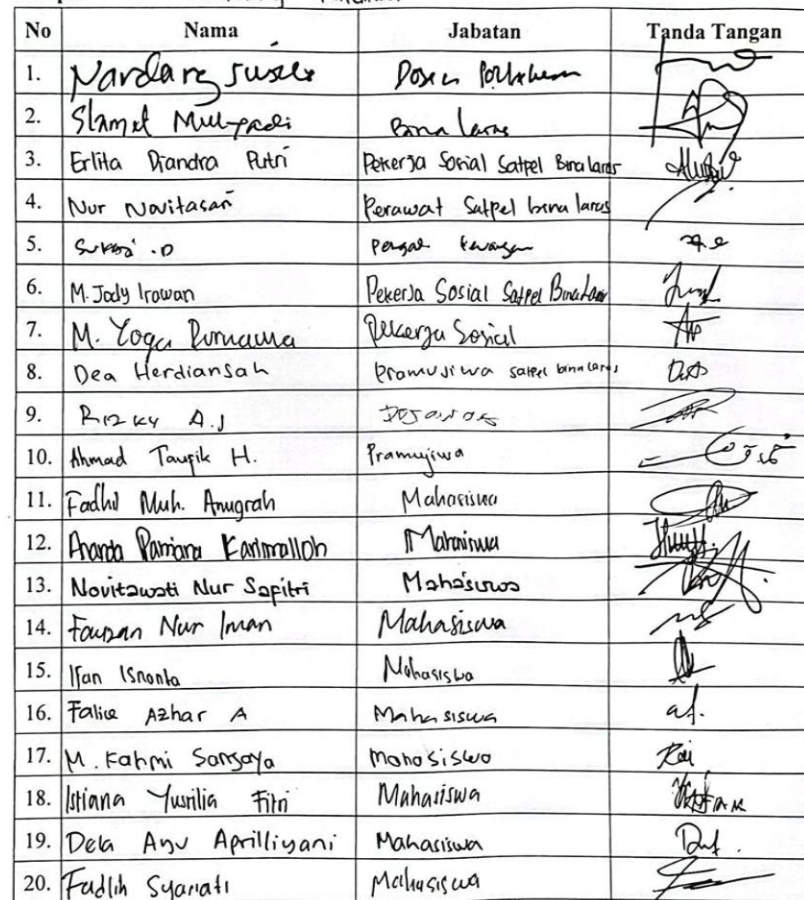 No Nama Jabatan Tanda Tangan
1. Nandang Susila Dosen
2. Slamet Mulyadi Bina laras
3. Erlita Diandra Putri Pekerja Sosial Satpel Bina laras
4. Nur Novitasari Perawat Satpel bina laras
5.
6. M. Jody Irawan Pekerja Sosial Satpel Bina Laras
7. M. Yoga Purnama Pekerja Sosial
8. Dea Herdiansah Pramujiwa satpel bina laras
9. Rizky A.J
10. Ahmad Taufik H. Pramujiwa
11. Fadhil Muh. Anugrah Mahasiswa
12. Ananda Karimalloh Mahasiswa
13. Novitawati Nur Sapitri Mahasiswa
14. Fauzan Nur Iman Mahasiswa
15. Ifan Isnanta Mahasiswa
16. Falice Azhar A Mahasiswa
17. M. Fahmi Sansaya Mahasiswa
18. Istiana Yusrilia Fitri Mahasiswa
19. Dela Ayu Aprilliyani Mahasiswa
20. Fadlih Syariati Mahasiswa